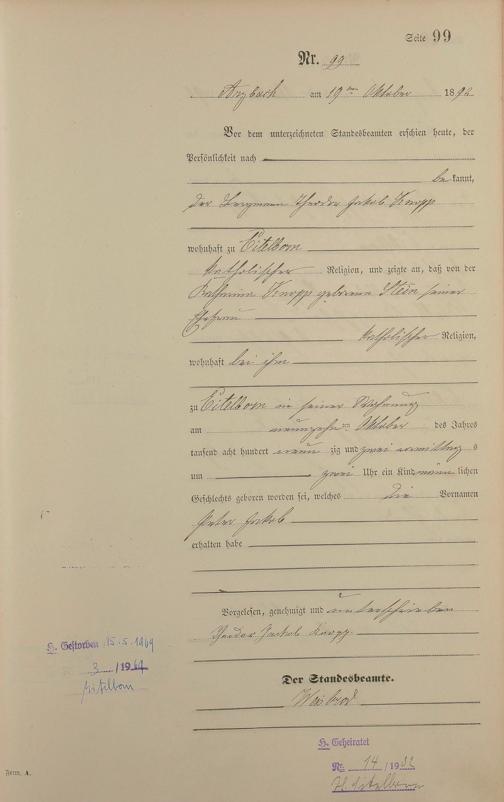 Seite 99
Nr. 99
Arzbach am 19ten Oktober 1892
Vor dem unterzeichneten Standesbeamten erschien heute, der
Persönlichkeit nach
bekannt,
der Bergmann Theodor Jakob Knopp
wohnhaft zu Eitelborn
katholischer Religion, und zeigte an, daß von der
Katharina Knopp geborene Stein seiner
Ehefrau
katholischer Religion,
wohnhaft bei ihm
zu Eitelborn in seiner Wohnung
am neunzehnten Oktober des Jahres
tausend acht hundert neunzig und zwei vormittags
um zwei Uhr ein Kind männlichen
Geschlechts geboren worden sei, welches die Vornamen
Peter Jakob
erhalten habe
Vorgelesen, genehmigt und unterschrieben
Theodor Jakob Knopp
Der Standesbeamte.
Weisbrod
H. Gestorben 15.5.1969
3/1969
Eitelborn
H. Geheiratet
Nr. 14/1922
Eitelborn
Form. A.